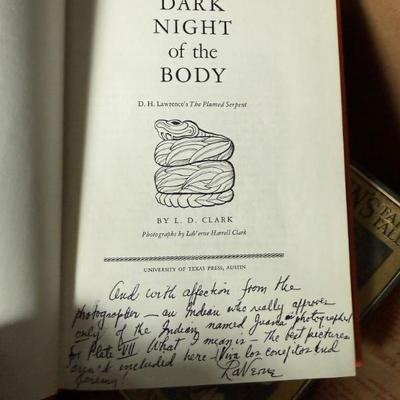 DARK
NIGHT
of the
BODY
D. H. Lawrence's The Plumed Serpent
BY L. D. CLARK
Photographs by LaVerne Harrell Clark
UNIVERSITY OF TEXAS PRESS, AUSTIN
And with affection from the
photographer — an Indian who really approves
only of the Indian named Juana photographed
for Plate VII What I mean is — the best pictures
aren't included here — Viva los conejitos and
Jeremy!
LaVerne